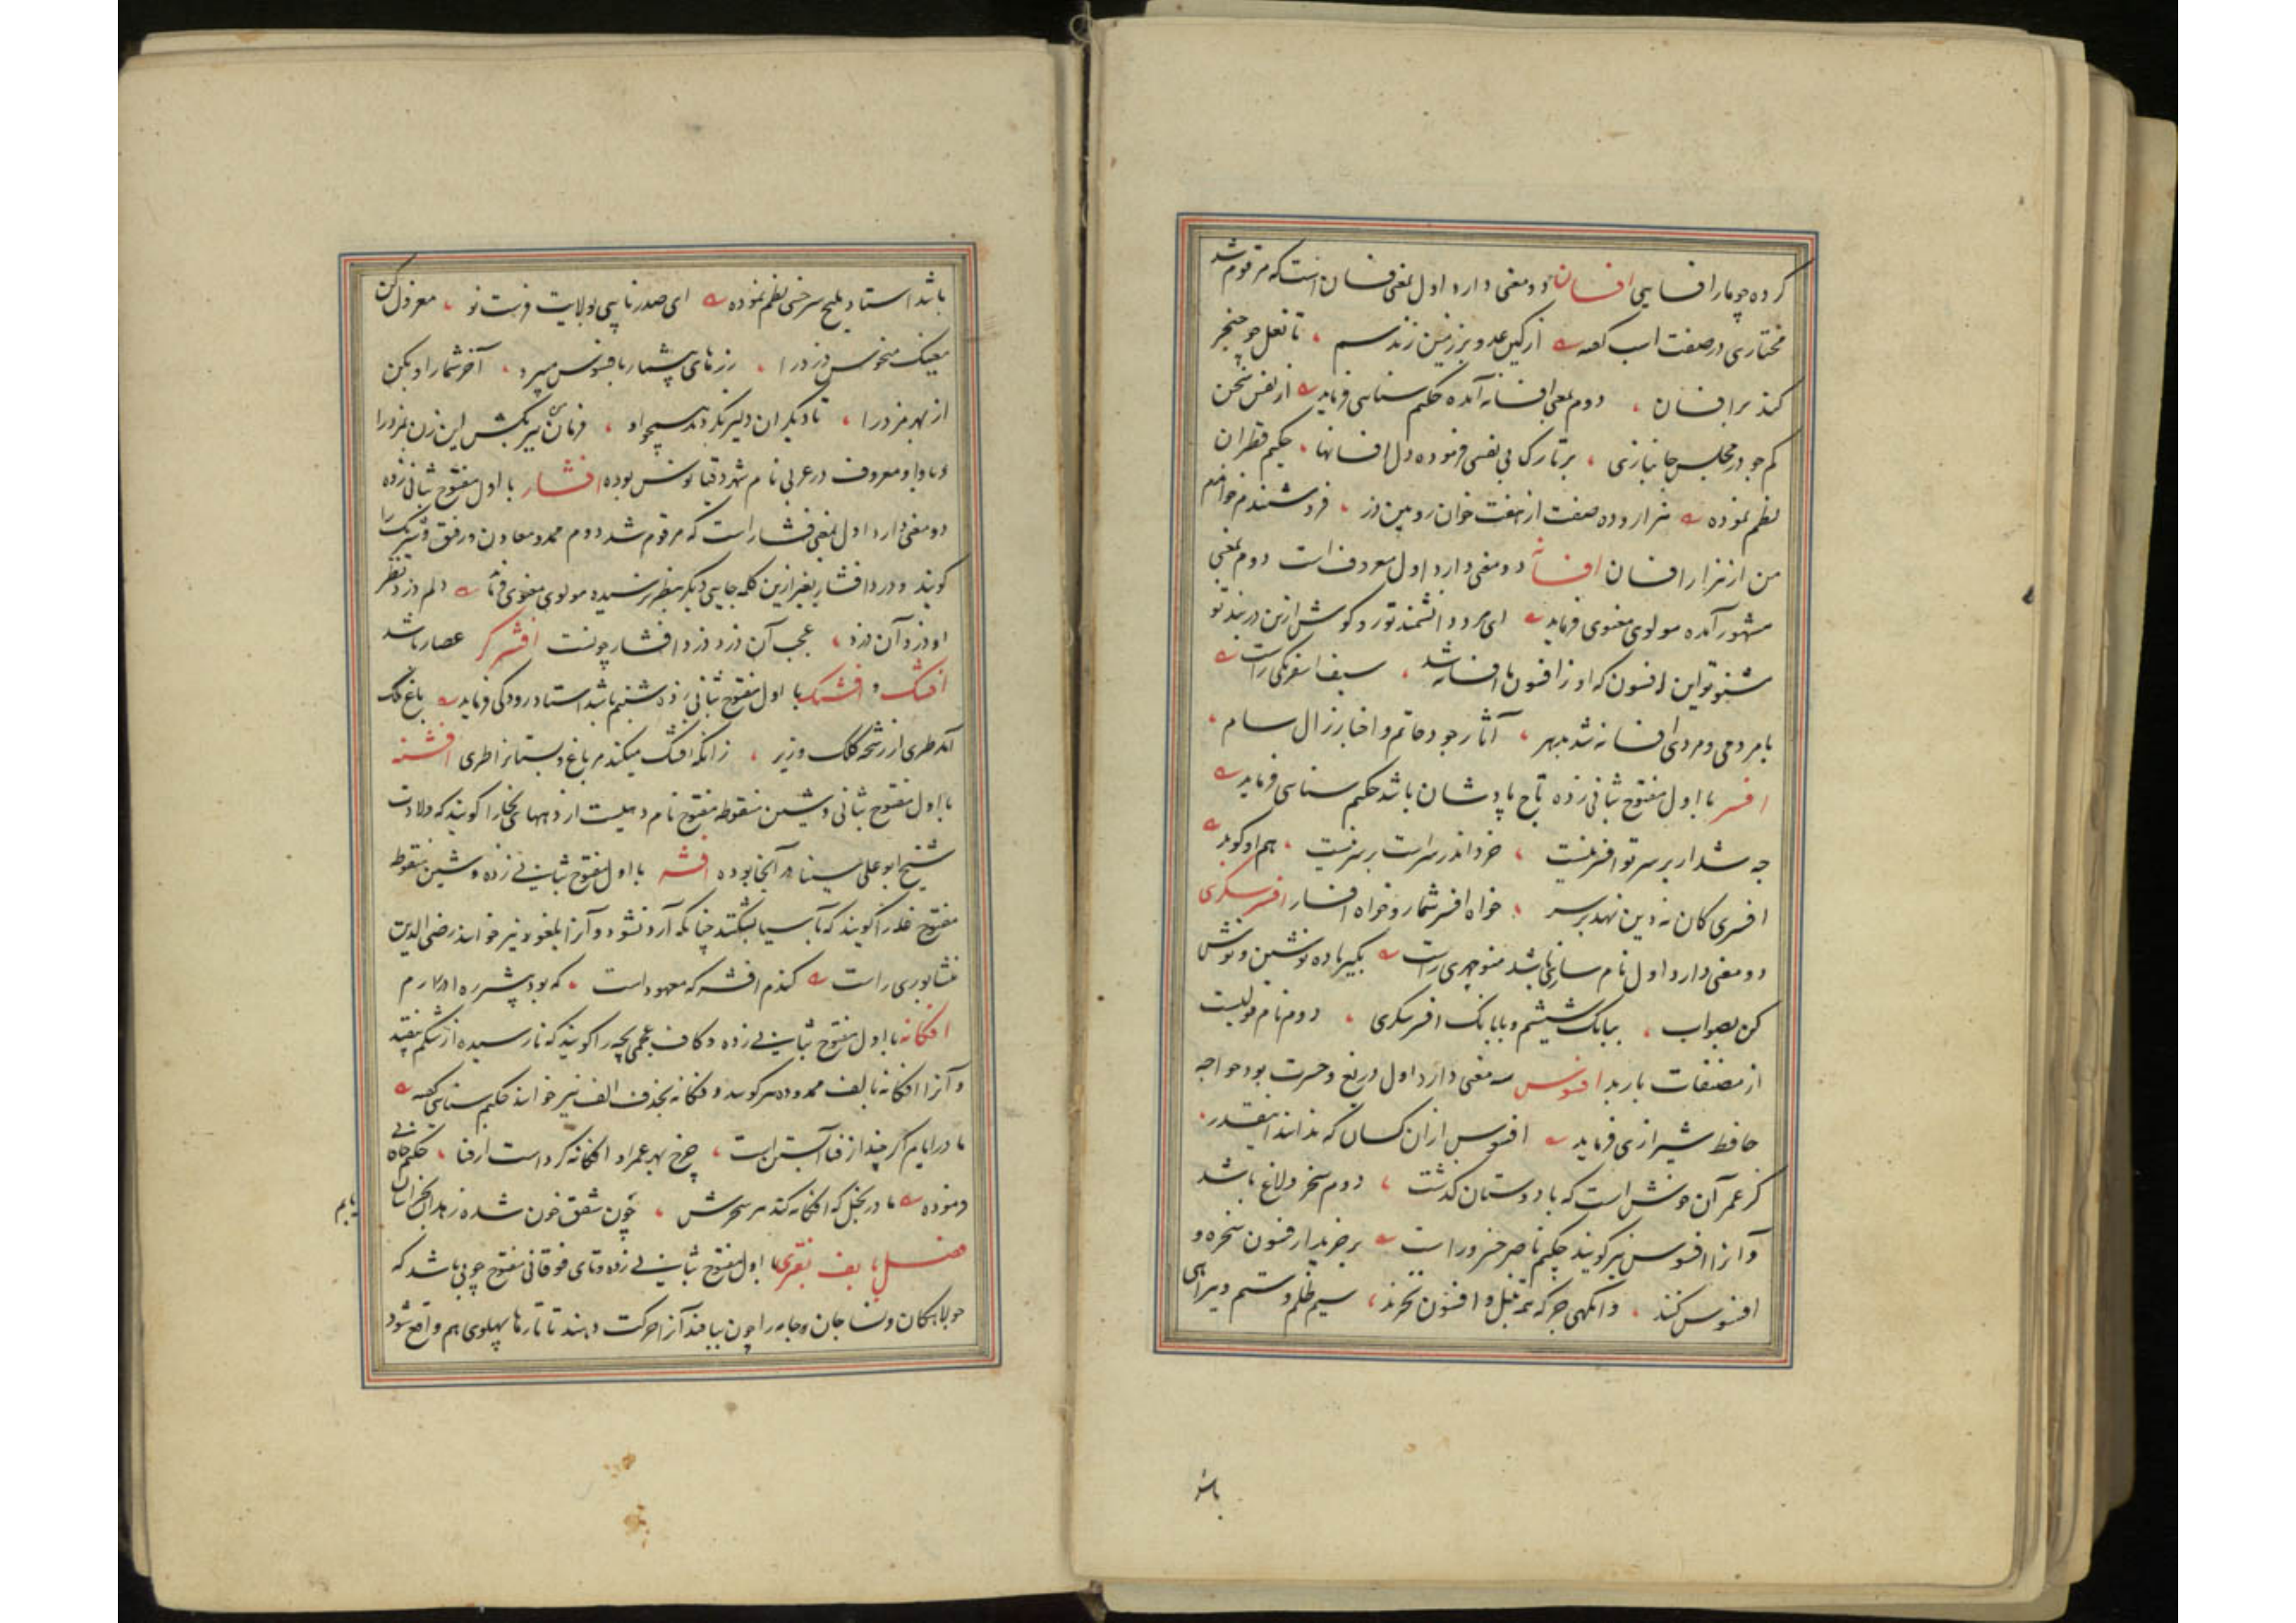 کرده چو مار افسایی افسان دو معنی دارد اول بمعنی فسان است که مرقوم شد
مختاری در صفت اسب گفته از کین عدو بر زمین زند سم تا نعل چو خنجر
کند بر افسان دوم بمعنی افسانه آمده حکیم سنایی فرماید از نفس سخن
کم جو در مجلس جانبازی بر تارک بی نفسی فرموده دل افسانها حکیم قطران
نظم نموده هزار و ده صفت از هفت خوان رویین دز فرو شنیدم و خواندم
من از هزار افسان افسانه دو معنی دارد اول معروف است دوم بمعنی
مشهور آمده مولوی معنوی فرماید ای مرد دانشمند تو دو گوش ازین در بند تو
مشنو تو این افسون که او ز افسون ما افسانه شد سیف اسفرنگی راست
با مردمی و مردی افسانه شد بدهر آثار جود حاتم و اخبار زال سام
افسر با اول مفتوح بثانی زده تاج پادشان باشد حکیم سنایی فرماید
چه شد ار بر سر تو افسر نیست خرد اندر سر است بر سر نیست هم او گوید
افسری کان نه دین نهد بر سر خواه افسر شمار و خواه افسار افسر سگزی
دو معنی دارد اول نام سازی باشد منوچهری راست بگیر باده نوشین و نوش
کن بصواب ببانک شیشم و با بانک افسر سگزی دوم نام قولیست
از مصنفات باربد افسوس سه معنی دارد اول دریغ و حسرت بود خواجه
حافظ شیرازی فرماید افسوس از ان کسان که ندانند اینقدر
کز عمر آن خوش است که با دوستان گذشت دوم سخر و لاغ باشد
و آنرا افسوس نیز گویند حکیم ناصر خسرو راست بر خریدار فسون سخره و
افسوس کنند وانگهی جز که همه تنبل و افسون نخرند سیم ظلم و ستم و بیراهی
باشد
باشد استاد بلیح سرخسی نظم نموده ای صدر نایبی بولایت فرست نو معزول کن
معینک منحوس دزد را رزهای بیشمار بافسوس میبرد آخر شمار او بکن
از بهر مزد را تا دیگران دلیر نگردند همچو او فرمان من ببر بکش این زن بمزد را
و با واو معروف در عربی نام شهر دقیانوس بوده افشار با اول مفتوح بثانی زده
دو معنی دارد اول بمعنی فشار است که مرقوم شد دوم ممد و معاون و رفیق و شریک را
گویند و دزد افشار بغیر ازین کلمه جایی دیگر بنظر نرسیده مولوی معنوی فرماید دلم دزد نظر
او دزد آن دزد عجب آن دزد دزد افشار چونست افشرگر عصار باشد
افشک و افشنک با اول مفتوح بثانی زده شبنم باشد استاد رودکی فرماید باغ ملک
آمد طری از رشحه کلک وزیر زانکه افشک میکند مر باغ و بستانرا طری افشنه
با اول مفتوح بثانی و شین منقوطه مفتوح نام دهیست از دههای بخارا گویند که ولادت
شیخ ابو علی سینا در آنجا بوده افشه با اول مفتوح بثانی زده و شین منقوطه
مفتوح غله را گویند که بآسیا بشکنند چنانکه آرد نشود و آنرا بلغور نیز خوانند رضی الدین
نشابوری راست گندم افشه که معهود است که بود پیش ره
افگانه با اول مفتوح بثانی زده و کاف عجمی بچه را گویند که نارسیده از شکم بیفتد
و آنرا افگانه بالف ممدوده هم گویند و فگانه بحذف الف نیز خوانند حکیم سنایی گفته
مادر ایام اگر چند از فنا آبستن است چرخ بهر عمر او افگانه کرد است از فنا حکیم خاقانی
فرموده مادر بخل که افگانه کند هر سحرش چون شفق خون شده زهدان بخراسان یابم
فصل با یف بفتری با اول مفتوح بثانی زده و تای فوقانی مفتوح چوبی باشد که
جولاهکان و نساجان وجامه را چون ببافند آنرا حرکت دهند تا تارها پهلوی هم واقع شود